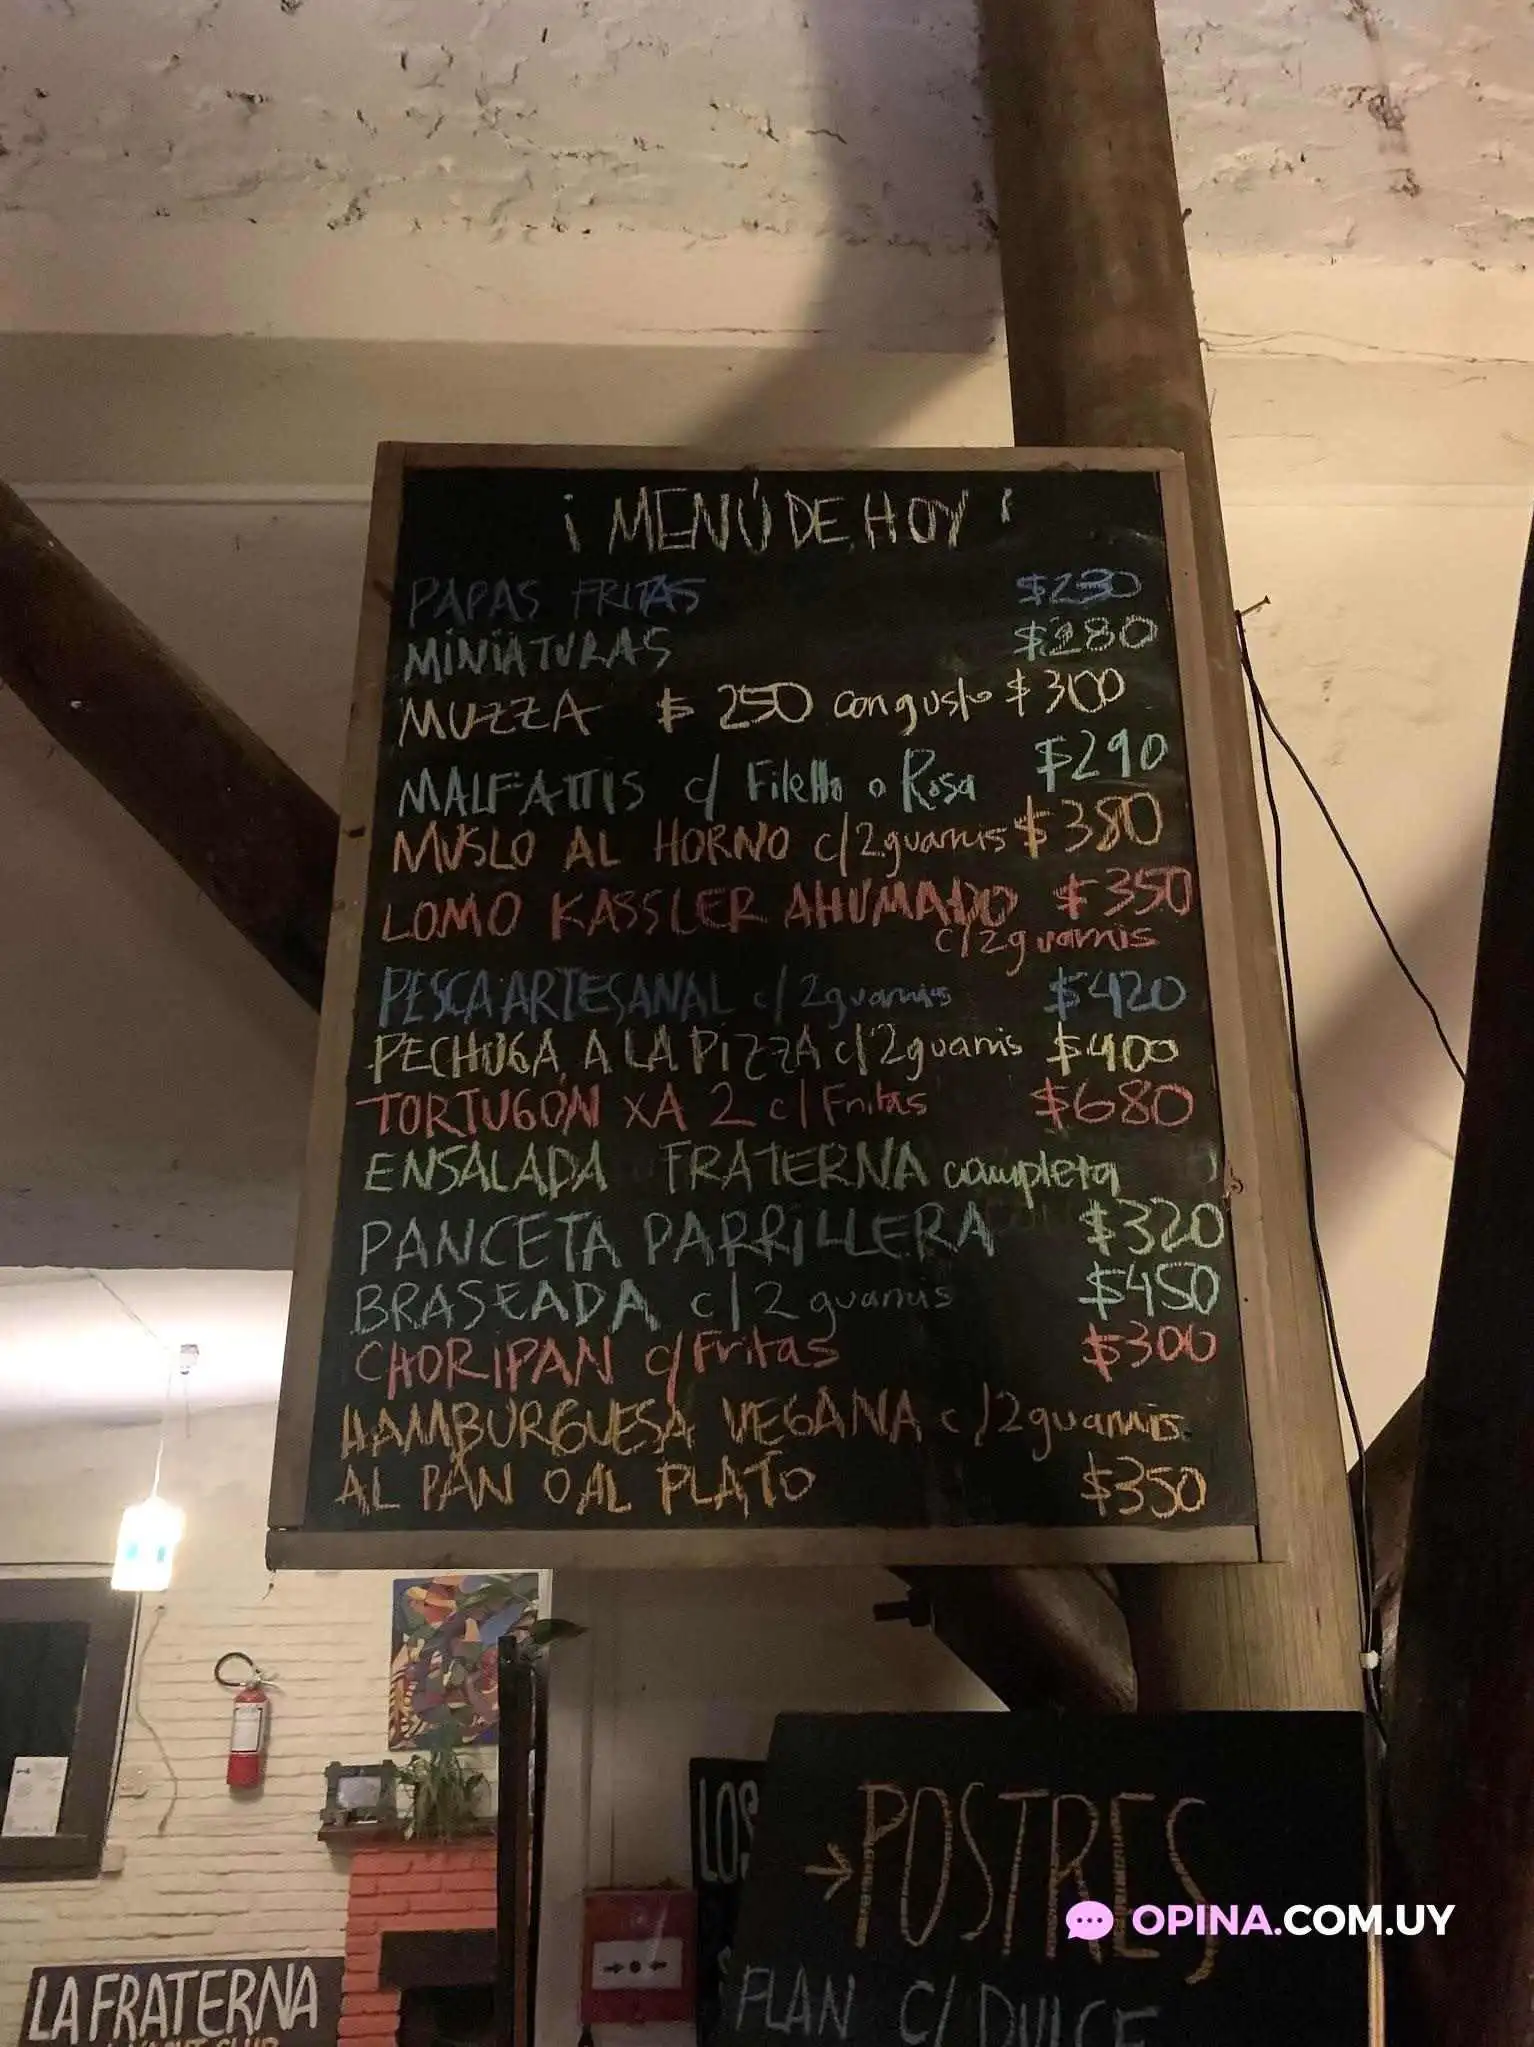 ¡MENÚ DE HOY!
PAPAS FRITAS $230
MINIATURAS $280
MUZZA $250 con gusto $300
MALFATTIS c/ Filetto o Rosa $290
MUSLO AL HORNO c/2 guarnis $380
LOMO KASSLER AHUMADO $350
c/2 guarnis
PESCA ARTESANAL c/2 guarnis $420
PECHUGA A LA PIZZA c/2 guarnis $400
TORTUGÓN XA 2 c/Fritas $680
ENSALADA FRATERNA completa
PANCETA PARRILLERA $320
BRASEADA c/2 guarnis $450
CHORIPAN c/Fritas $300
HAMBURGUESA VEGANA c/2 guarnis
AL PAN O AL PLATO $350
LOS
POSTRES
FLAN C/ DULCE
LA FRATERNA
OPINA.COM.UY